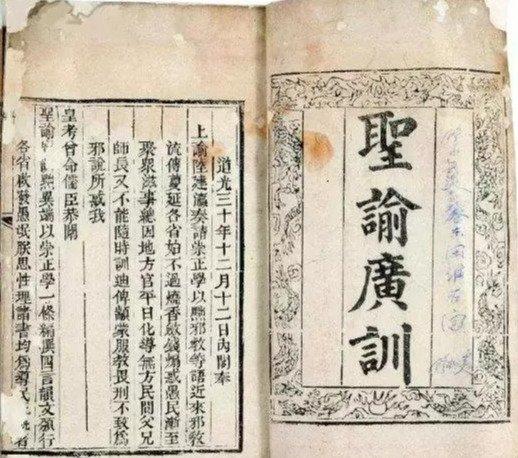 聖諭廣訓
道光三十年十二月十二日內閣奉
上諭陸建瀛奏請崇正學以黜邪教等語近來邪教
流傳蔓延各省始不過燒香歛錢煽惑愚民漸至
聚衆滋事總因地方官平日化導無方民間父兄
師長又不能隨時訓廸俾顓蒙服教畏刑不致為
邪說所惑我
皇考曾命儒臣恭閱
聖諭黜異端以崇正學一條撰四言韻文頒行
各省啟發愚氓朕思性理諸書均爲